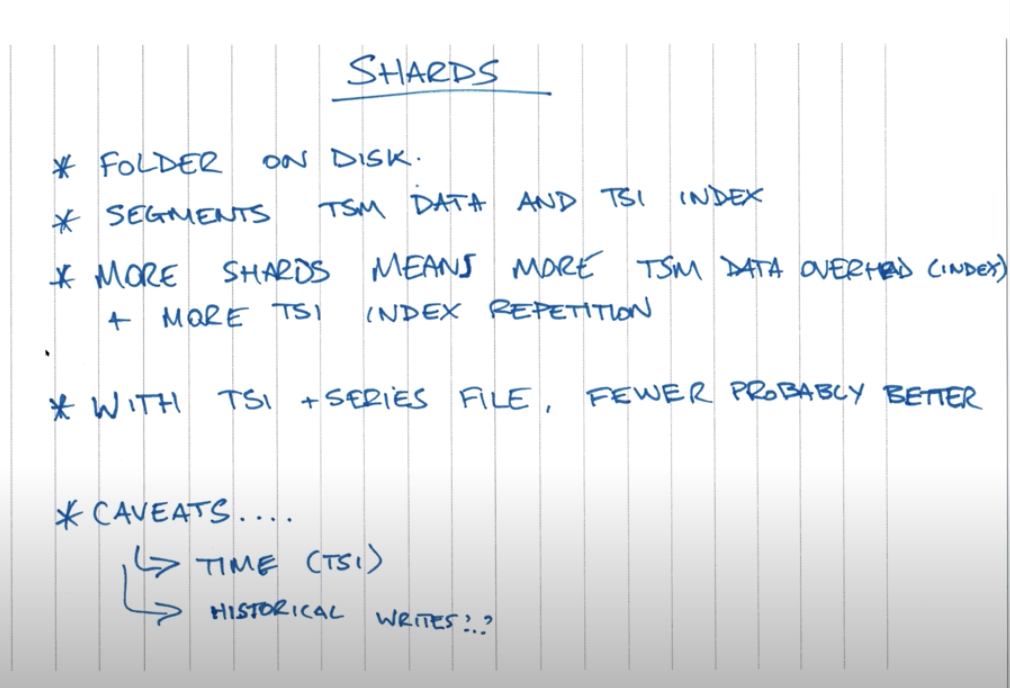 SHARDS
* FOLDER ON DISK.
* SEGMENTS TSM DATA AND TSI INDEX
* MORE SHARDS MEANS MORE TSM DATA OVERHEAD (INDEX)
+ MORE TSI INDEX REPETITION
* WITH TSI + SERIES FILE, FEWER PROBABLY BETTER
* CAVEATS....
↳ TIME (TSI)
↳ HISTORICAL WRITES?.?